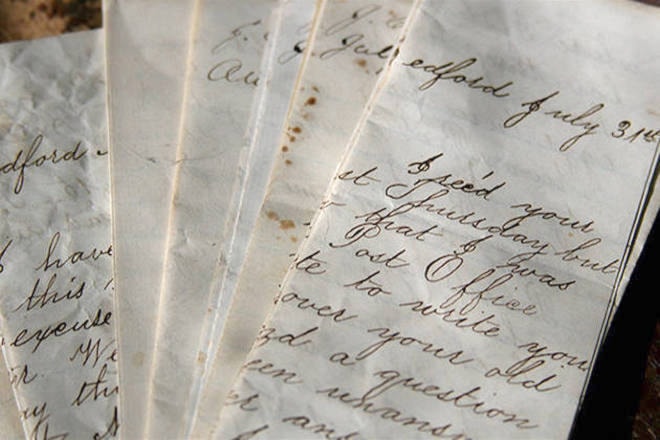 dford
I have
this
excuse
r. We
y th
J.
Au
J. Jul
edford July 31st
I rec'd your
st Thursday but
that I was
Post Office
te to write you
over your old
d a question
een unans
er an